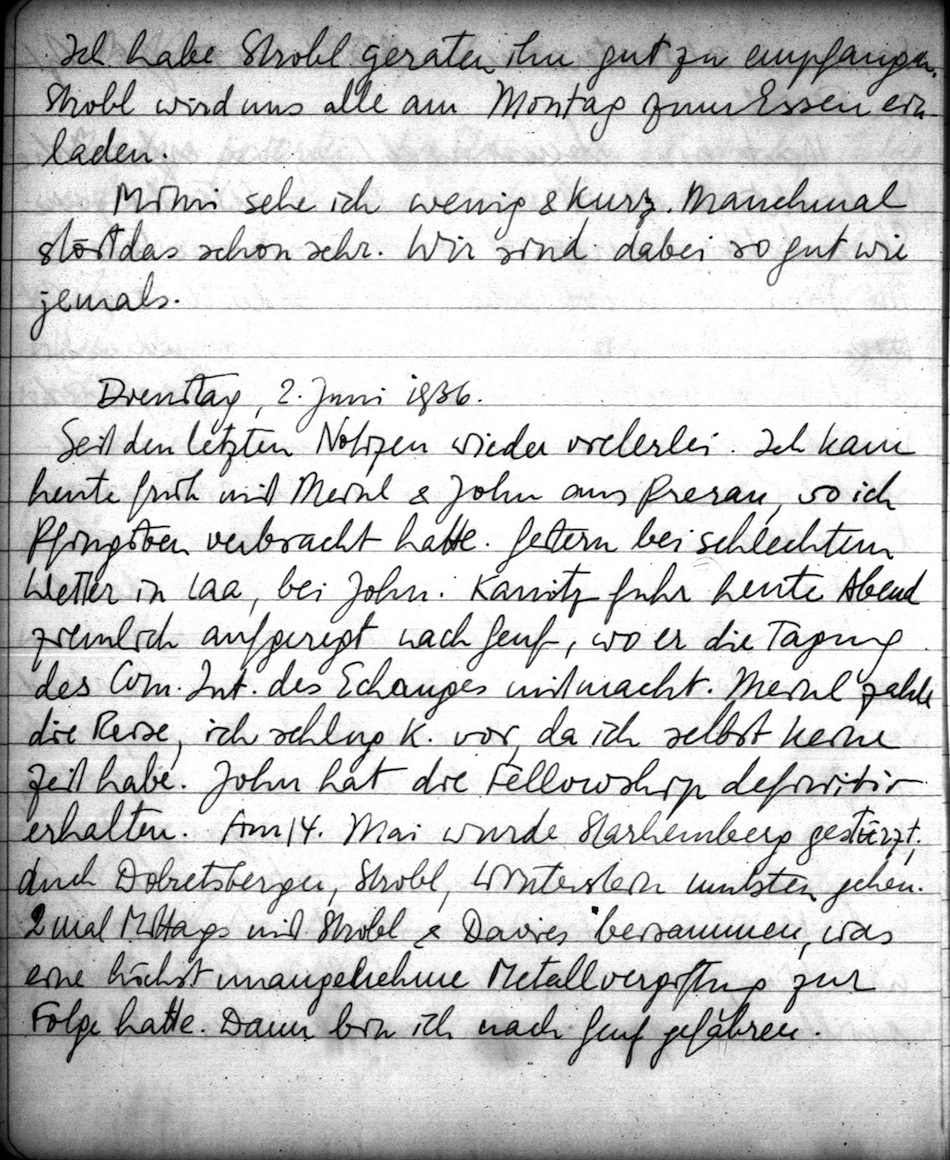 Ich habe Strobl geraten, ihn gut zu empfangen.
Strobl wird uns alle am Montag zum Essen ein-
laden.
Mimi sehe ich wenig & kurz. Manchmal
stört das schon sehr. Wir sind dabei so gut wie
jemals.
Dienstag, 2. Juni 1936.
Seit den letzten Notizen wieder vielerlei. Ich kam
heute früh mit Meinl & John aus Prerau, wo ich
Pfingsten verbracht hatte. Gestern bei schlechtem
Wetter in Laa, bei John. Kamitz fuhr heute Abend
ziemlich aufgeregt nach Genf, wo er die Tagung
des Com. Int. des Echanges mitmacht. Meinl zahlt
die Reise, ich schlug K. vor, da ich selbst keine
Zeit habe. John hat die Fellowship definitiv
erhalten. Am 14. Mai wurde Starhemberg gestürzt;
auch Dobretsberger, Strobl, Winterstein mussten gehen.
2 mal Mittags mit Strobl & Davies beisammen, was
eine höchst unangenehme Metallvergiftung zur
Folge hatte. Dann bin ich nach Genf gefahren.